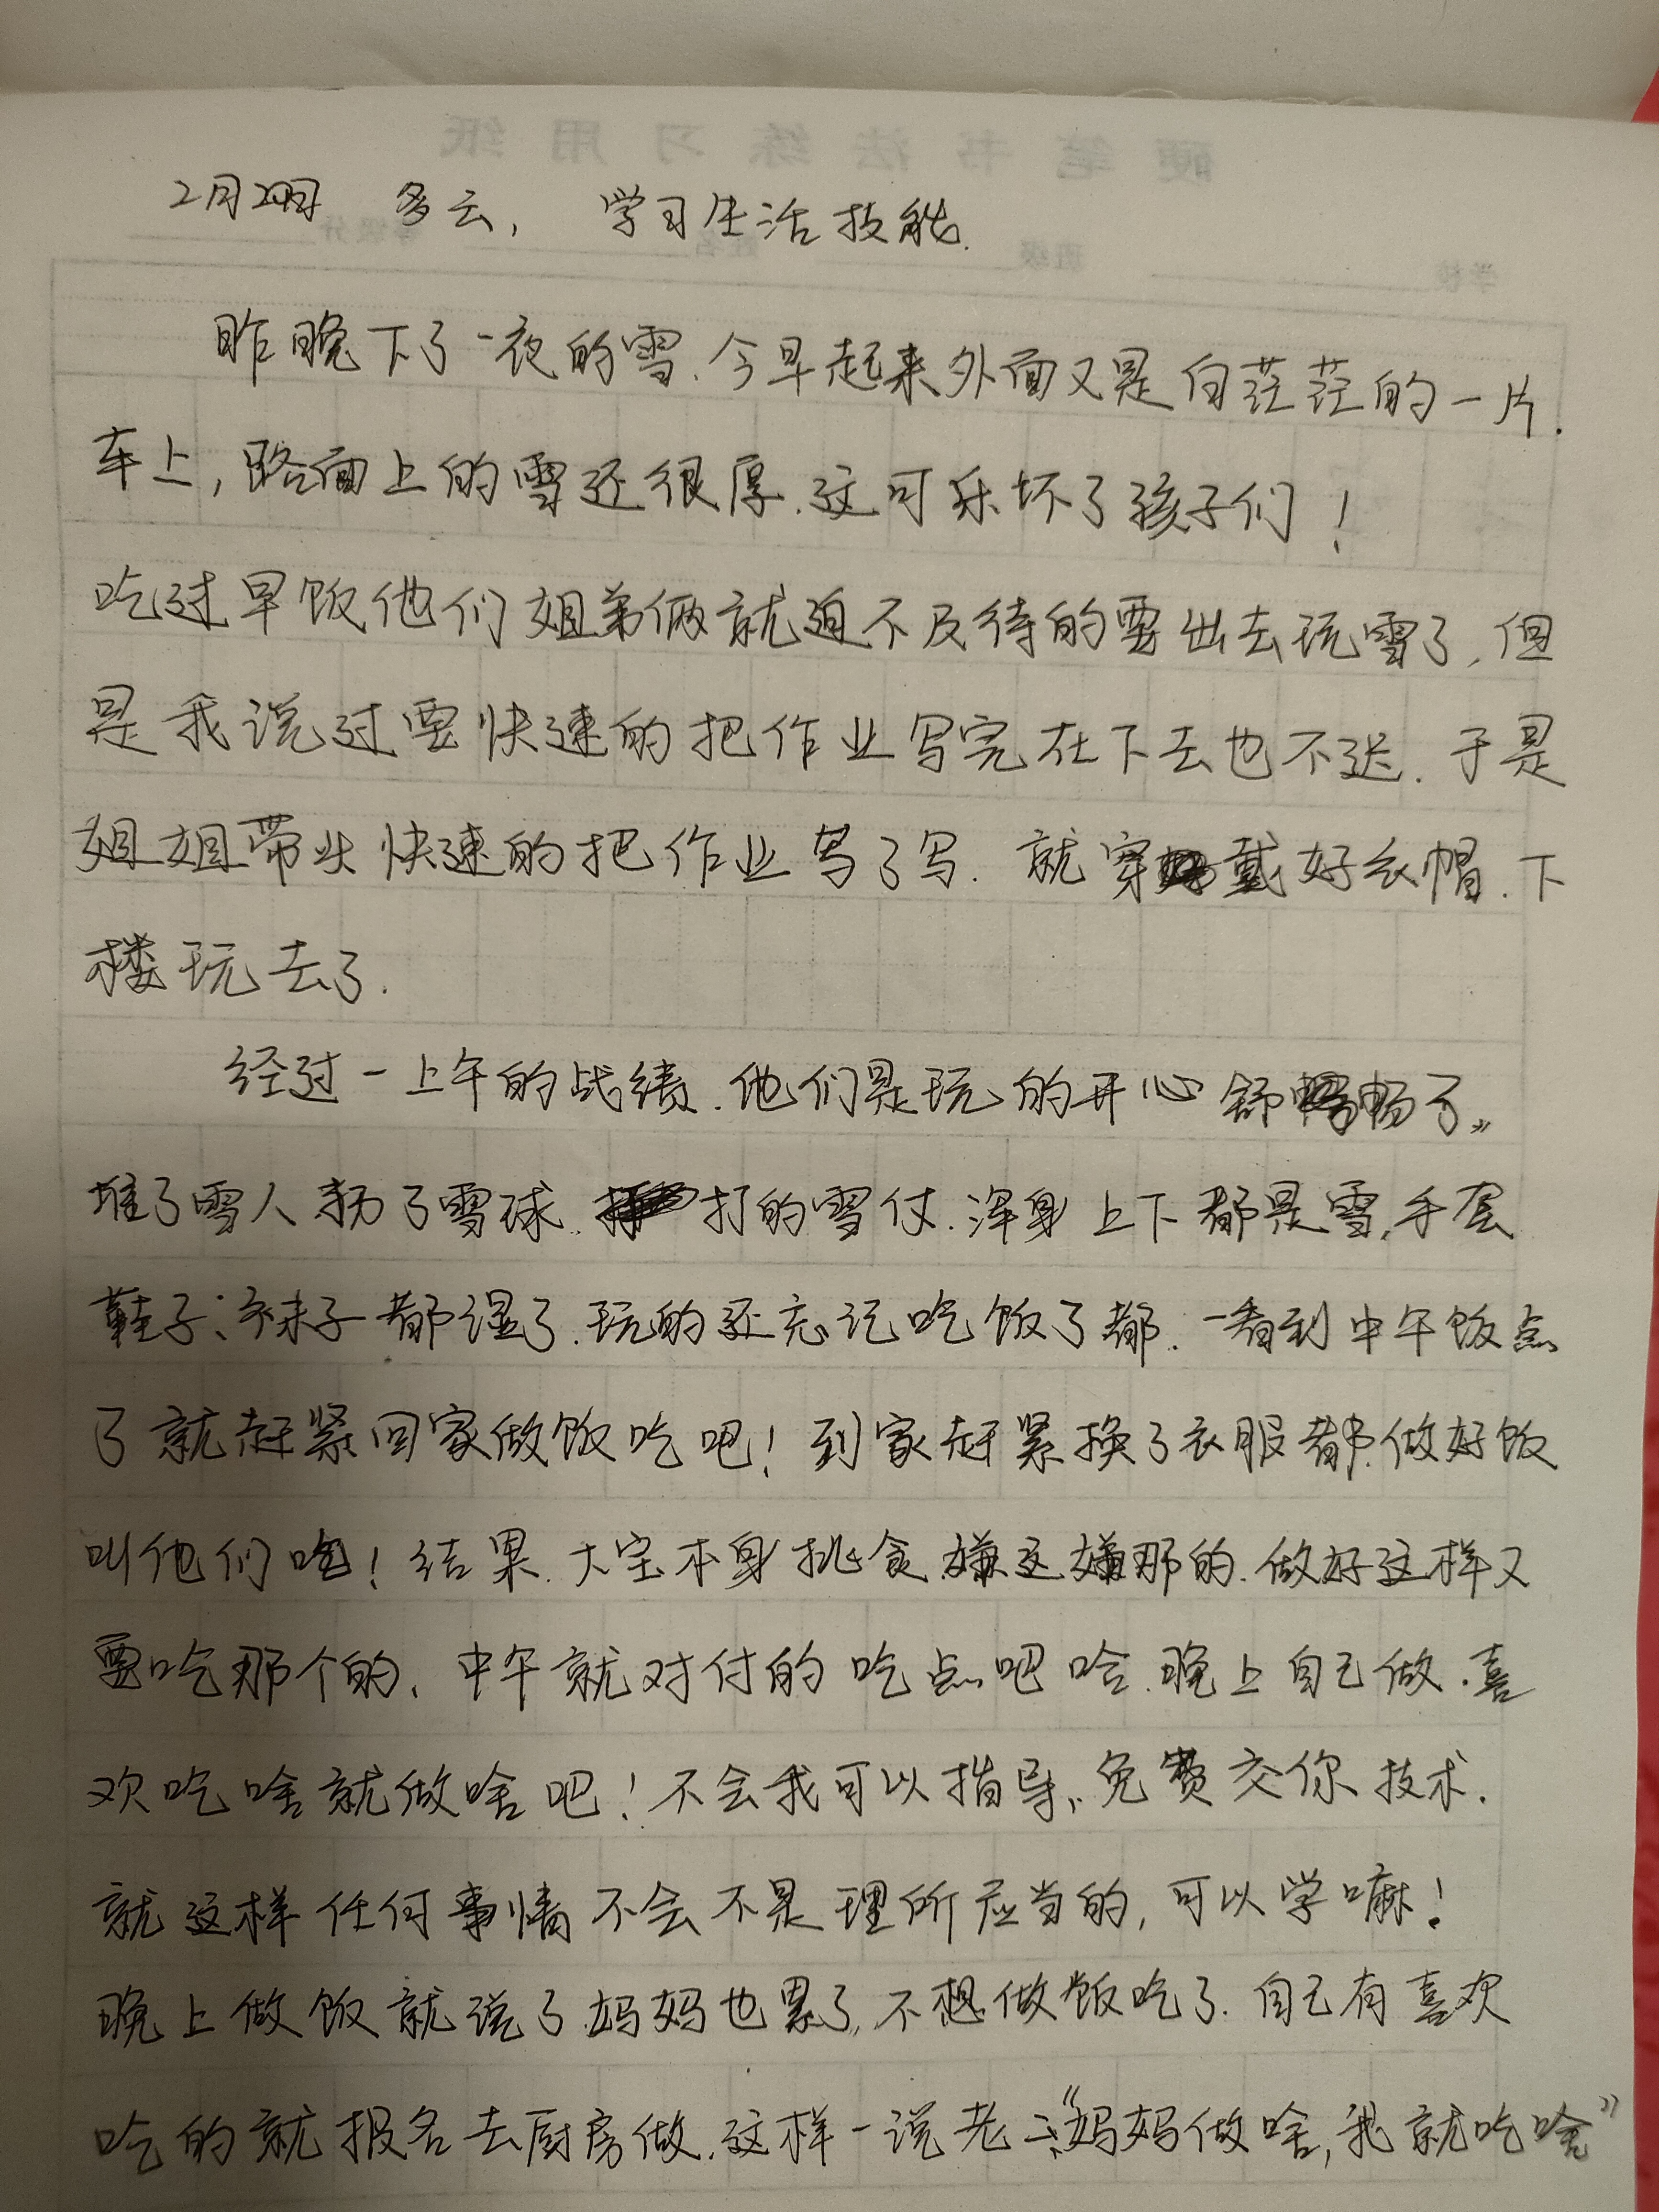 硬笔书法练习用纸
2月2日 多云, 学习生活技能.
学校 班级 姓名
昨晚下了一夜的雪.今早起来外面又是白茫茫的一片.
车上,路面上的雪还很厚.这可乐坏了孩子们!
吃过早饭他们姐弟俩就迫不及待的要出去玩雪了,但
是我说过要快速的把作业写完在下去也不迟.于是
姐姐带头快速的把作业写了写.就穿戴好衣帽.下
楼玩去了.
经过一上午的战绩.他们是玩的开心舒畅了。
堆了雪人 了雪球.打的雪仗.浑身上下都是雪,手套
鞋子、袜子都湿了.玩的还忘记吃饭了都.一看到中午饭点
了就赶紧回家做饭吃吧!到家赶紧换了衣服都.做好饭
叫他们吃!结果.大宝本身挑食.嫌这嫌那的.做好这样又
要吃那个的、中午就对付的吃点吧啥.晚上自己做.喜
欢吃啥就做啥吧!不会我可以指导、免费交你技术.
就这样任何事情不会不是理所应当的,可以学嘛!
晚上做饭就说了.妈妈也累了,不想做饭吃了.自己有喜欢
吃的就报名去厨房做.这样一说老二:“妈妈做啥,我就吃啥”